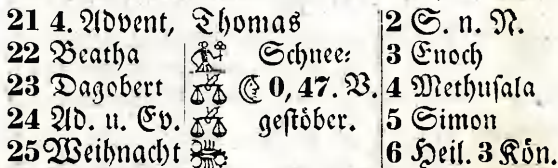 21 4. Advent, Thomas 2 S. n. N.
22 Beatha Schnee: 3 Enoch
23 Dagobert 0,47. V. 4 Methusala
24 Ad. u. Ev. gestöber. 5 Simon
25 Weihnacht 6 Heil. 3 Kön.